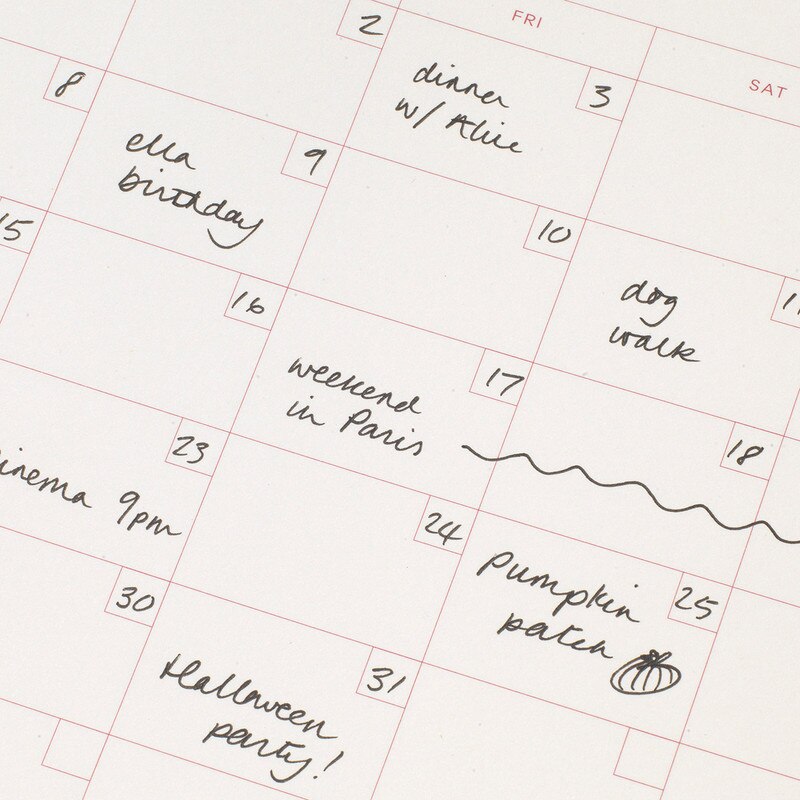 FRI
SAT
2
dinner
w/ Alice
3
8
ella
birthday
9
10
dog
walk
15
16
weekend
in Paris
17
18
9pm
23
24
pumpkin
patch
25
30
Halloween
party!
31